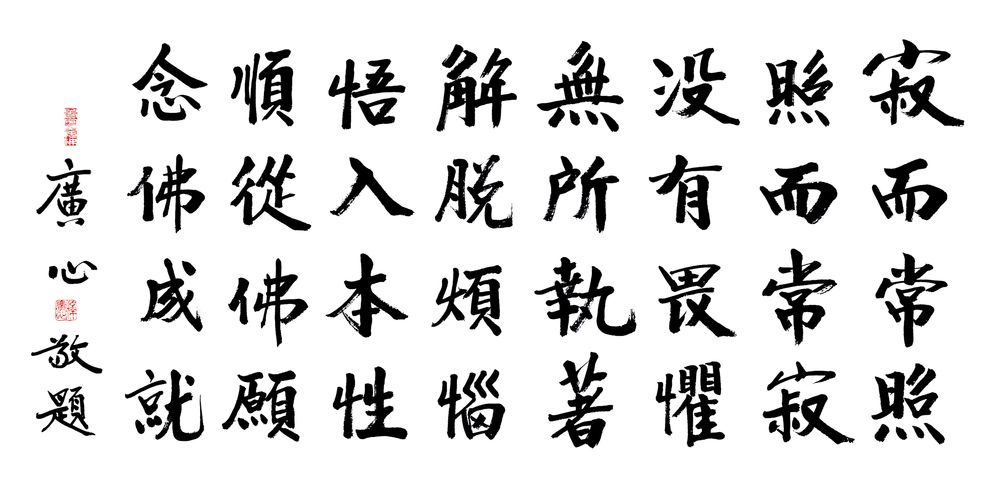 寂而常照
照而常寂
没有畏懼
無所執著
解脱煩惱
悟入本性
順從佛願
念佛成就
廣心敬題